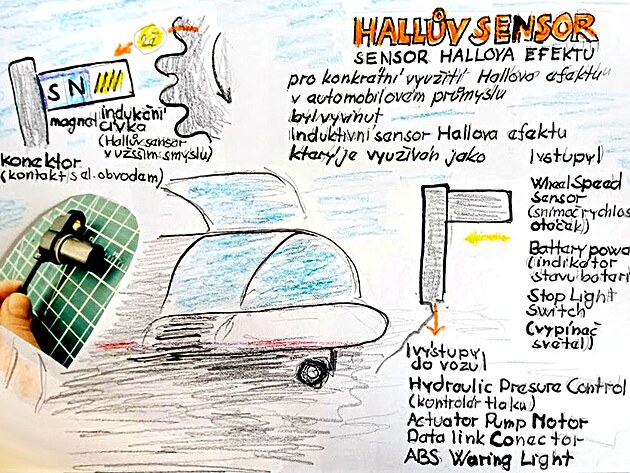 HALLŮV SENSOR
SENSOR HALLOVA EFEKTU
pro konkrátní využití Hallova efaktu
v automobilovám průmyslu
byl vyvinut
induktivní sensor Hallova efaktu
který je využíván jako
S N
magnet
indukční
cívka
(Hallův sensor
v užsším smyslu)
konektor
(kontakt s el. obvodam)
|vstupy|
Wheel Speed
Sensor
(snímač rychlos
otoček)
Battary powa
(indikátor
stavu batari
Stop Light
Switch
(vypínač
světel)
|výstupy|
do vozu|
Hydraulic Presure Control
(kontrolár tlaku)
Actuator Pump Motor
Data link Conector
ABS Waring Light